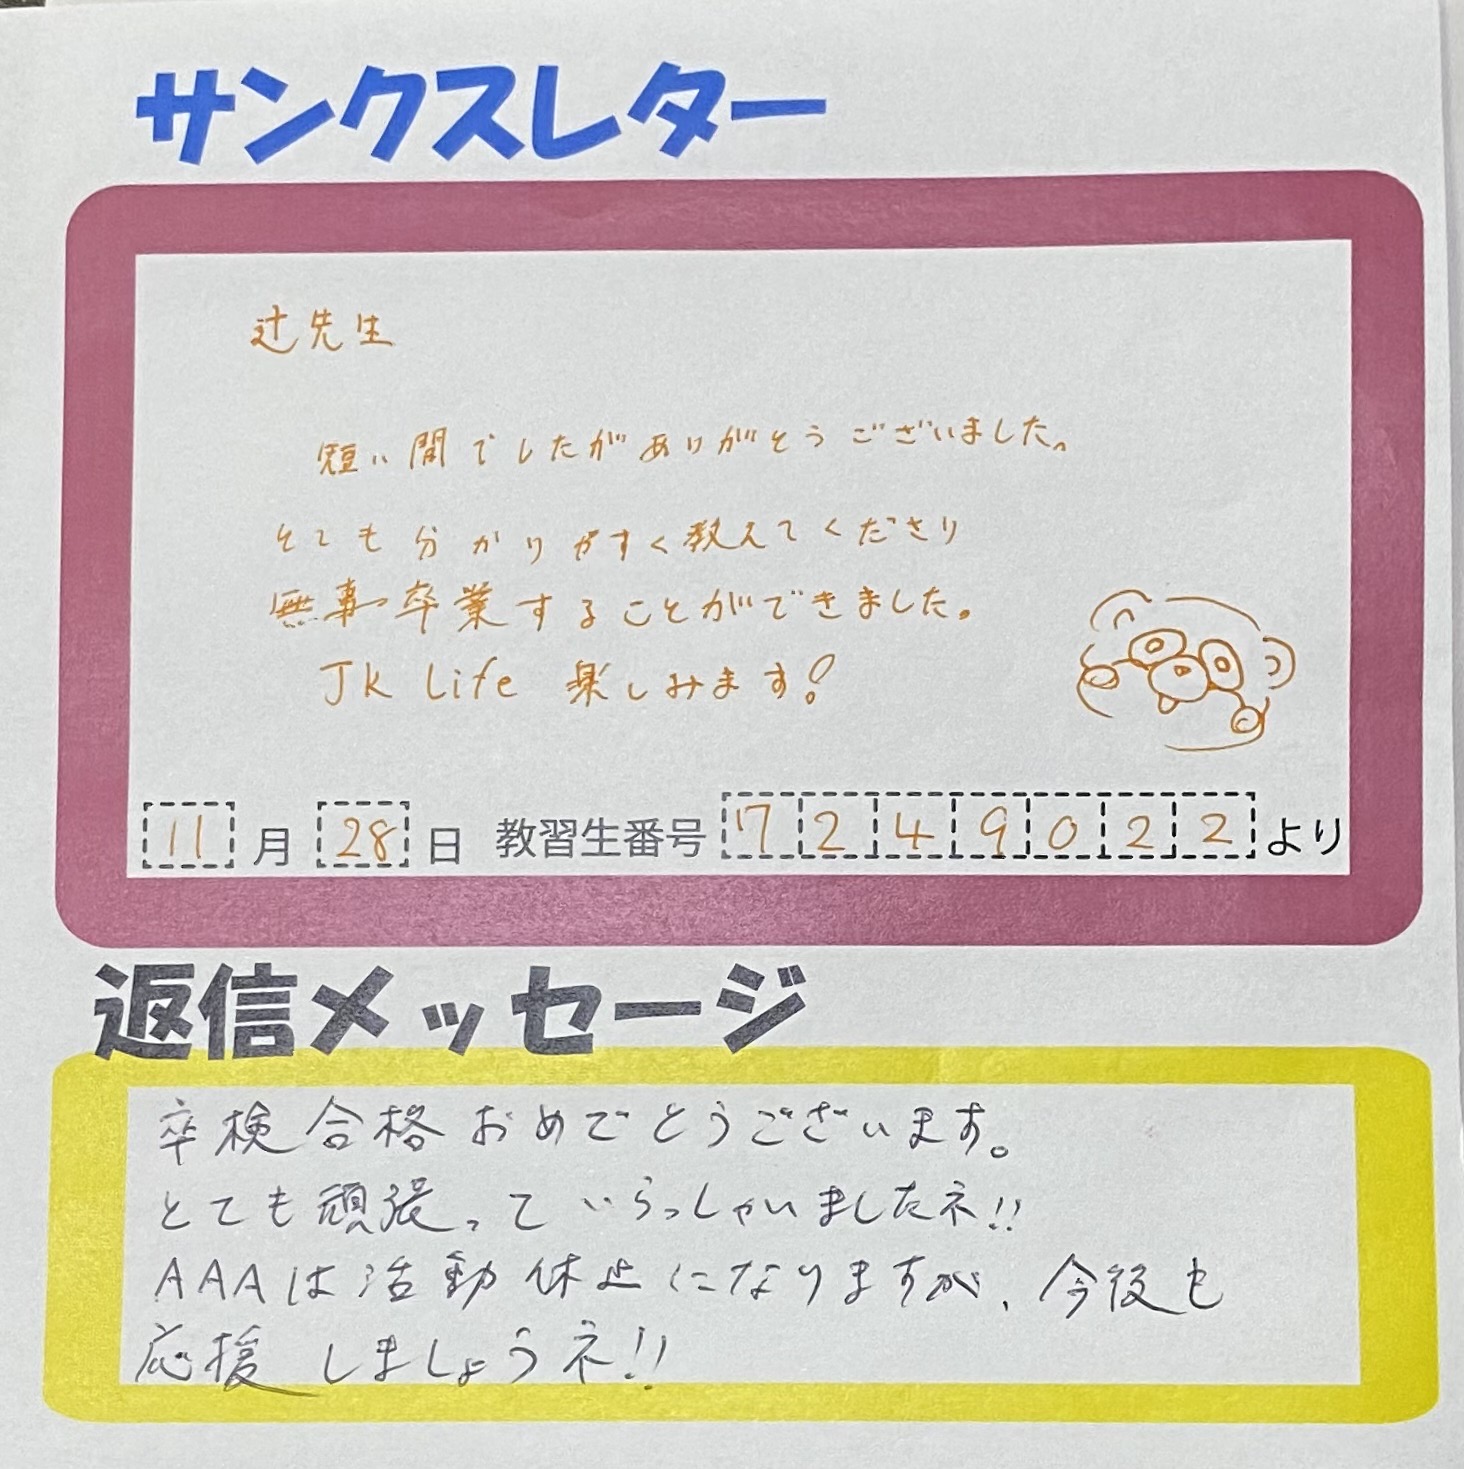 サンクスレター
辻先生
短い間でしたがありがとうございました。
とても分かりやすく教えてくださり
無事卒業することができました。
JK Life 楽しみます!
11月28日 教習生番号 7249022より
返信メッセージ
卒検合格おめでとうございます。
とても頑張っていらっしゃいましたネ!!
AAAは活動休止になりますが、今後も
応援しましょうネ!!